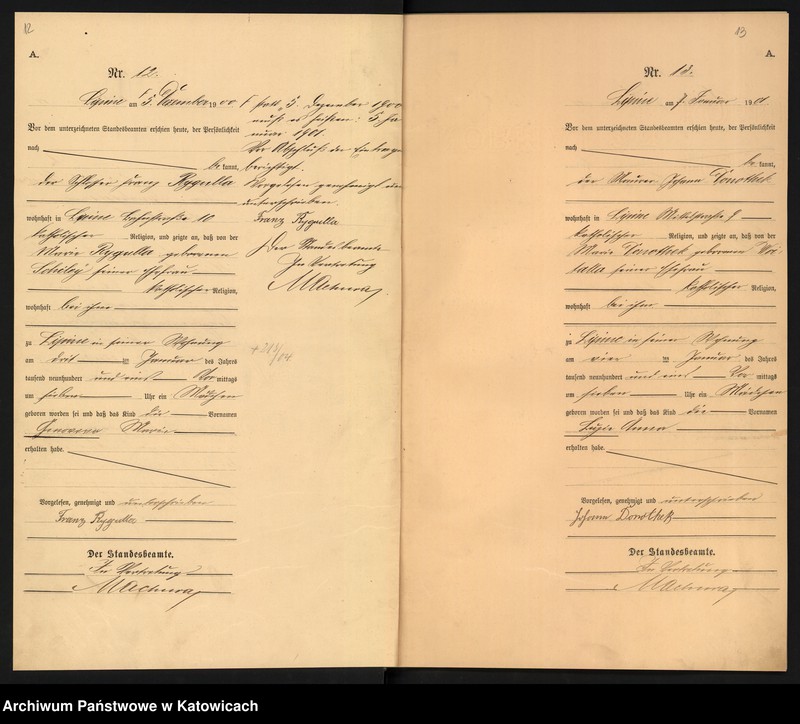 12
A.
Nr. 12.
Lipine am 5. Dezember 1900
Vor dem unterzeichneten Standesbeamten erschien heute, der Persönlichkeit
nach
bekannt,
der Schlosser Franz Rygulla
wohnhaft in Lipine 10
katholischer Religion, und zeigte an, daß von der
Marie Rygulla geborenen
seiner Ehefrau
katholischer Religion,
wohnhaft bei ihm
zu Lipine in seiner Wohnung
am drei ten Januar des Jahres
tausend neunhundert und eins Vor mittags
um sieben Uhr ein Mädchen
geboren worden sei und daß das Kind die Vornamen
Marie
erhalten habe.
Vorgelesen, genehmigt und unterschrieben
Franz Rygulla
Der Standesbeamte.
In Vertretung
Machura
statt 5. Dezember 1900
muß es heißen: 5. Ja
nuar 1901.
Vor Abschluß der Eintragung
berichtigt.
Vorgelesen, genehmigt und
unterschrieben.
Franz Rygulla
Der Standesbeamte
In Vertretung
Machura
13
A.
Nr. 13.
Lipine am 7. Januar 1901
Vor dem unterzeichneten Standesbeamten erschien heute, der Persönlichkeit
nach
bekannt,
der Maurer Johann Donothek
wohnhaft in Lipine 9
katholischer Religion, und zeigte an, daß von der
Marie Donothek geborenen
seiner Ehefrau
katholischer Religion,
wohnhaft bei ihm
zu Lipine in seiner Wohnung
am vier ten Januar des Jahres
tausend neunhundert und eins Vor mittags
um sieben Uhr ein Mädchen
geboren worden sei und daß das Kind die Vornamen
Luzie Anna
erhalten habe.
Vorgelesen, genehmigt und unterschrieben
Johann Donothek
Der Standesbeamte.
In Vertretung
Machura
Archiwum Państwowe w Katowicach